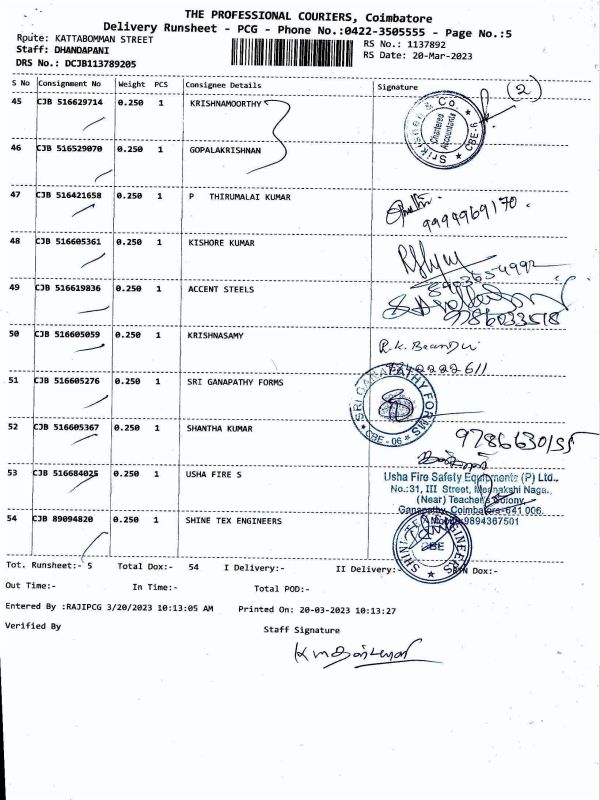 THE PROFESSIONAL COURIERS, Coimbatore
Delivery Runsheet - PCG - Phone No.:0422-3505555 - Page No.:5
Rpute: KATTABOMMAN STREET
RS No.: 1137892
Staff: DHANDAPANI
RS Date: 20-Mar-2023
DRS No.: DCJB113789205
S No Consignment No Weight PCS Consignee Details Signature
(2)
45 CJB 516629714 0.250 1 KRISHNAMOORTHY
Srikishen & Co
Chartered
Accountants
CBE-6
46 CJB 516529070 0.250 1 GOPALAKRISHNAN
47 CJB 516421658 0.250 1 P THIRUMALAI KUMAR
9994969170.
48 CJB 516605361 0.250 1 KISHORE KUMAR
49 CJB 516619836 0.250 1 ACCENT STEELS
9786033518
50 CJB 516605059 0.250 1 KRISHNASAMY
51 CJB 516605276 0.250 1 SRI GANAPATHY FORMS
SRI GANAPATHY FORMS
CBE - 06
52 CJB 516605367 0.250 1 SHANTHA KUMAR
9786630155
53 CJB 516684025 0.250 1 USHA FIRE S
Usha Fire Safety Equipments (P) Ltd.,
No.:31, III Street, Meenakshi Nagar,
(Near) Teacher's Colony,
Ganapathy, Coimbatore-641 006.
Mobile:9894367501
54 CJB 89094820 0.250 1 SHINE TEX ENGINEERS
SHINE TEX ENGINEERS
CBE
Tot. Runsheet:- 5 Total Dox:- 54 I Delivery:- II Delivery:- Dox:-
Out Time:- In Time:- Total POD:-
Entered By :RAJIPCG 3/20/2023 10:13:05 AM Printed On: 20-03-2023 10:13:27
Verified By Staff Signature